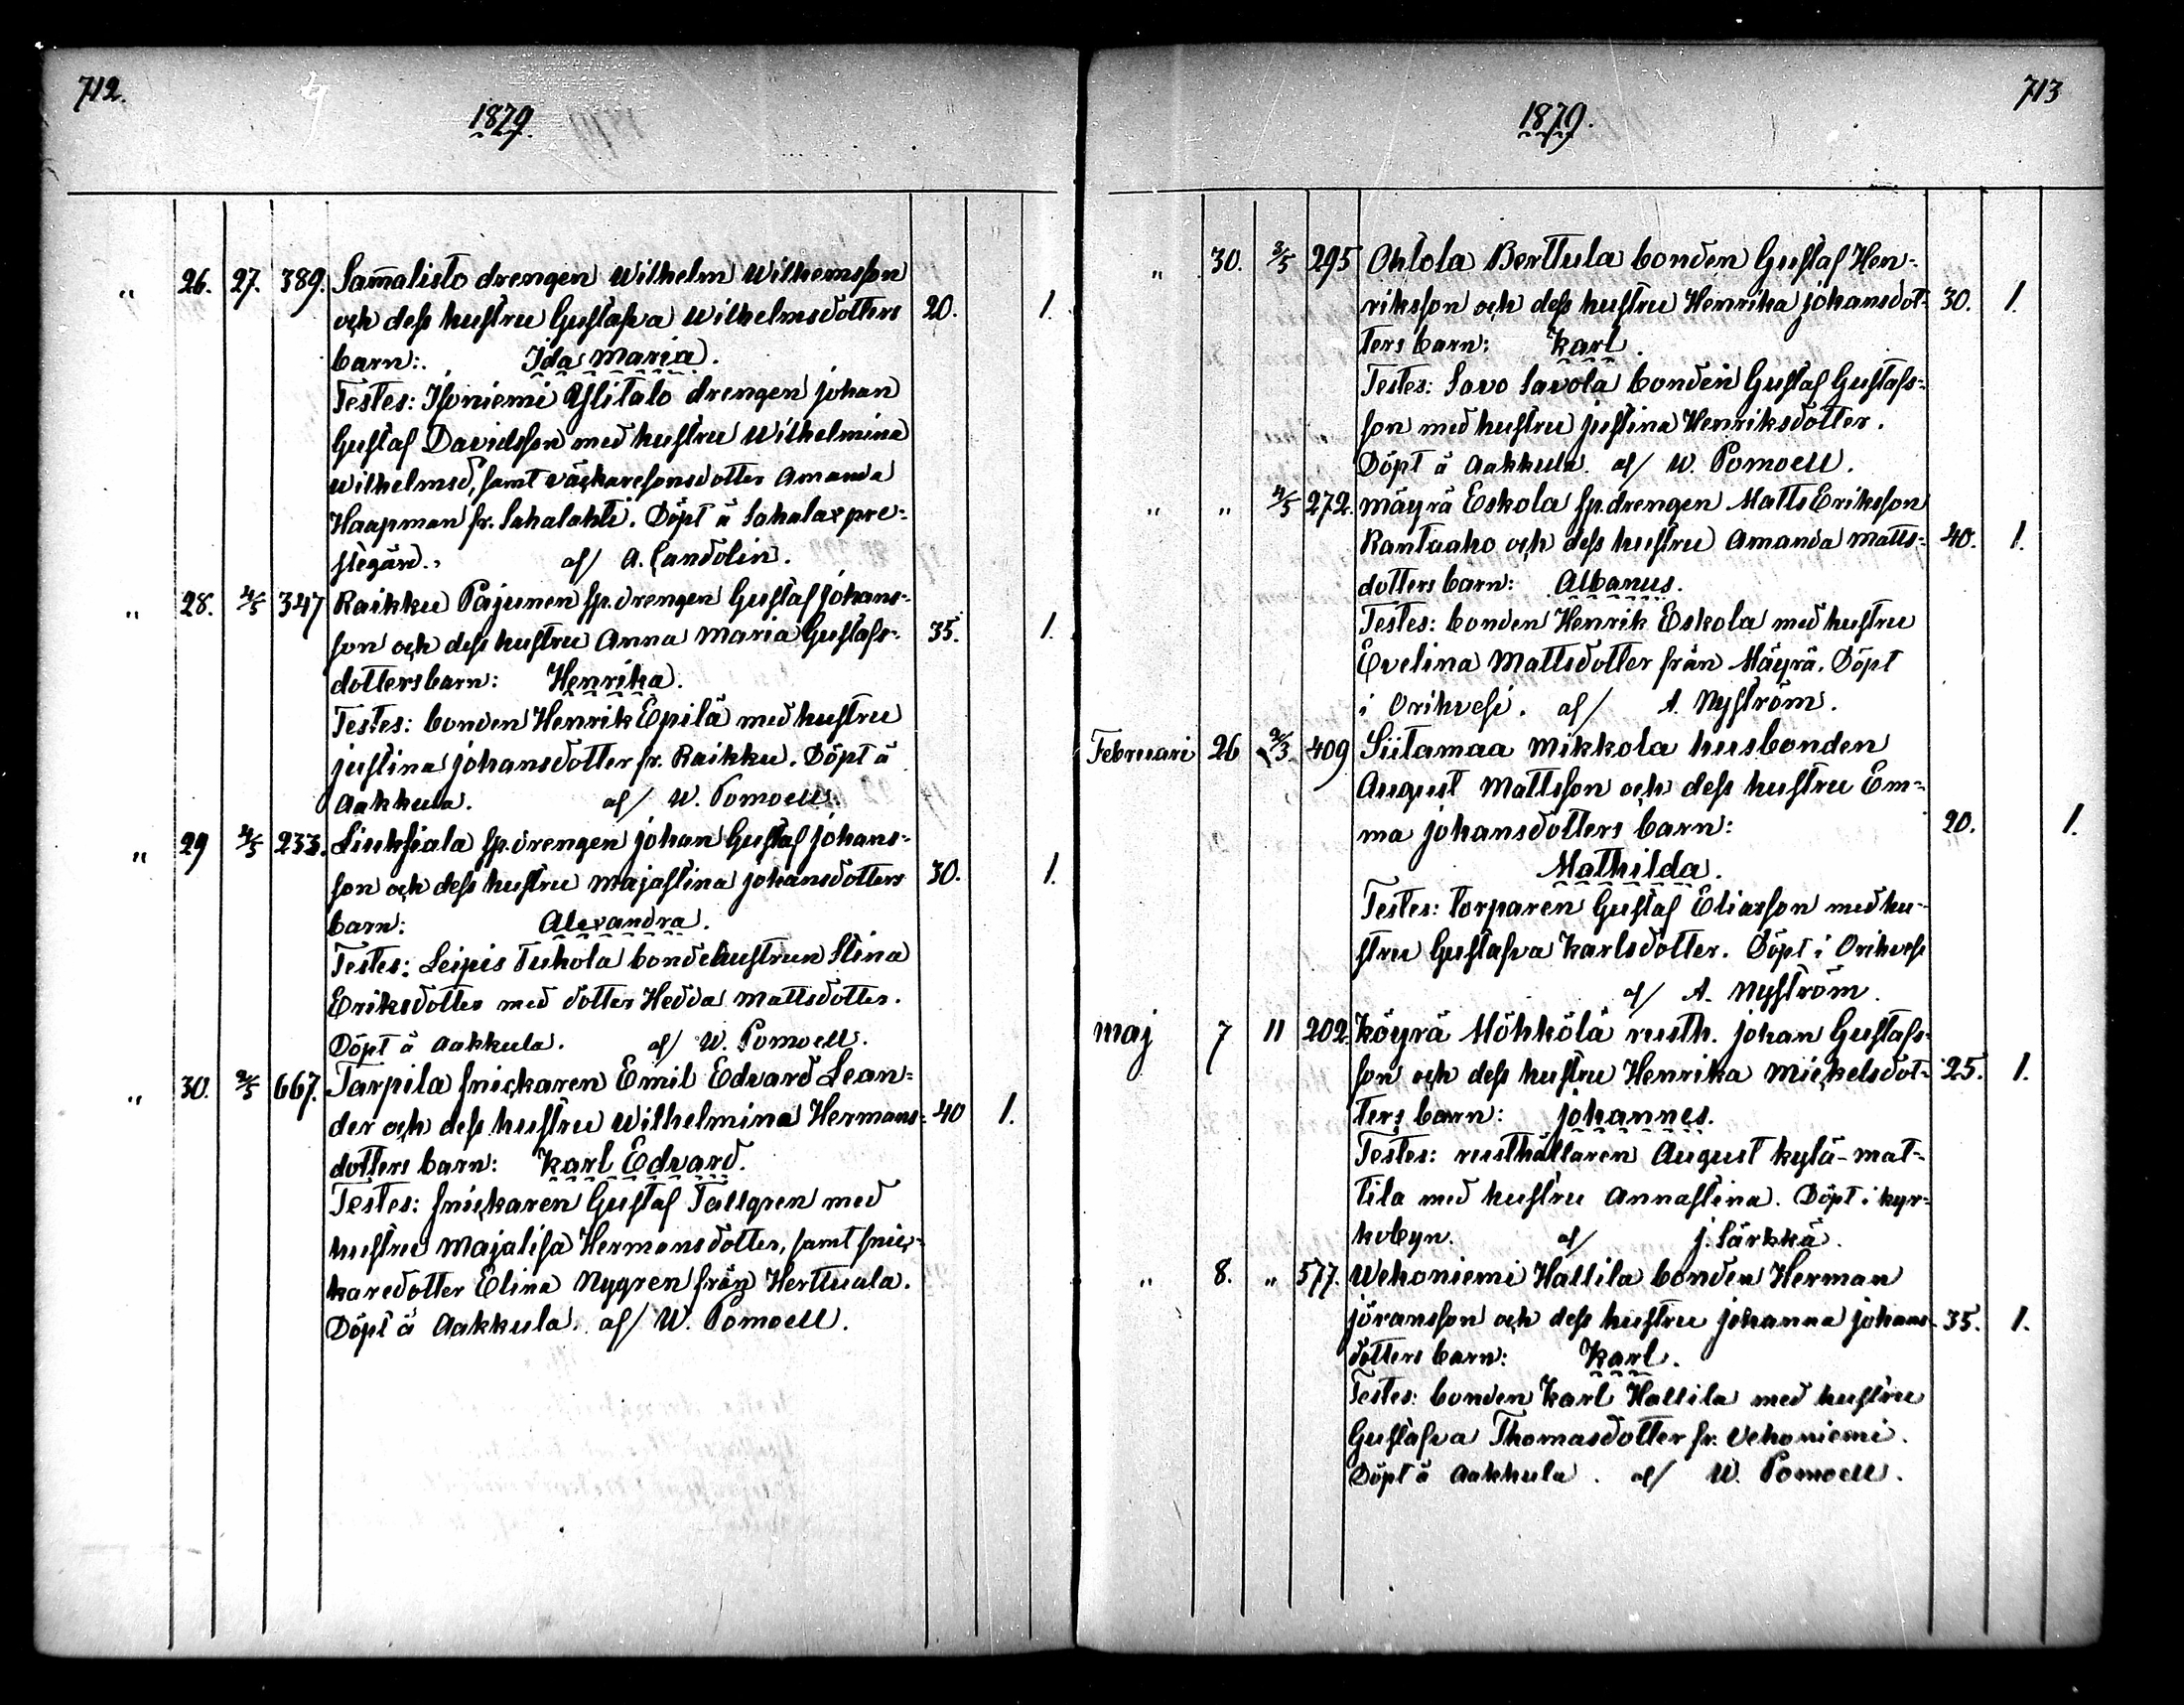 712.
1879.
" 26. 27. 389. Sam̄alisto drengen Wilhelm Wilhemsson
och dess hustru Gustafva Wilhelmsdotters 20. 1.
barn: Ida Maria.
Testes: Isoniemi Ylitalo drengen Johan
Gustaf Davidsson med hustru Wilhelmina
Wilhelmsd, samt väckaresonsdotter Amanda
Haapman fr. Sahalahti. Döpt å Sahalax pre-
stegård. af/ A. Candolin.
" 28. 4/5 347 Raikku Pajunen sp.drengen Gustaf Johans-
son och dess hustru Anna Maria Gustafs- 35. 1.
dotters barn: Henrika.
Testes: bonden Henrik Epilä med hustru
Justina Johansdotter fr. Raikku. Döpt å
Aakkula. af/ W. Pomoell.
" 29 4/5 233. Liuksiala sp.drengen Johan Gustaf Johans-
son och dess hustru Majastina Johansdotters 30. 1.
barn: Alexandra.
Testes: Leipis Tuhola bondehustrun Stina
Eriksdotter med dotter Hedda Mattsdotter.
Döpt å Aakkula. af/ W. Pomoell.
" 30. 2/5 667. Tarpila snickaren Emil Edvard Lean-
der och dess hustru Wilhelmina Hermans- 40 1.
dotters barn: Karl Edvard.
Testes: snickaren Gustaf Tallgren med
hustru Majalisa Hermansdotter, samt snic-
karedotter Elina Nygren från Herttuala.
Döpt å Aakkula. af/ W. Pomoell.
713
1879.
" 30. 3/5 295 Ohtola Berttula bonden Gustaf Hen-
riksson och dess hustru Henrika Johansdot- 30. 1.
ters barn: Karl.
Testes: Savo Savola bonden Gustaf Gustafs-
son med hustru Justina Henriksdotter.
Döpt å Aakkula. af/ W. Pomoell.
" " 4/5 272. Mäyrä Eskola sp.drengen Matts Eriksson
Rantuaho och dess hustru Amanda Matts- 40. 1.
dotters barn: Albanus.
Testes: bonden Henrik Eskola med hustru
Evelina Mattsdotter från Mäyrä. Döpt
i Orihvesi. af/ A. Nyström.
Februari 26 2/3. 409 Siitamaa Mikkola husbonden
August Mattsson och dess hustru Em-
ma Johansdotters barn: 20. 1.
Mathilda.
Testes: torparen Gustaf Eliasson med hu-
stru Gustafva Karlsdotter. Döpt i Orihvesi
af/ A. Nyström.
Maj 7 11 202. Köyrä Möhkölä rusth. Johan Gustafs-
son och dess hustru Henrika Mickelsdot- 25. 1.
ters barn: Johannes.
Testes: rusthållaren August Kylä-Mat-
tila med hustru Annastina. Döpt i kyr-
kobyn. af/ J. Särkkä.
" 8. " 577. Wehoniemi Hallila bonden Herman
Jöransson och dess hustru Johanna Johans- 35. 1.
dotters barn: Karl.
Testes: bonden Karl Hallila med hustru
Gustafva Thomasdotter fr. Vehoniemi.
Döpt å Aakkula. af/ W. Pomoell.